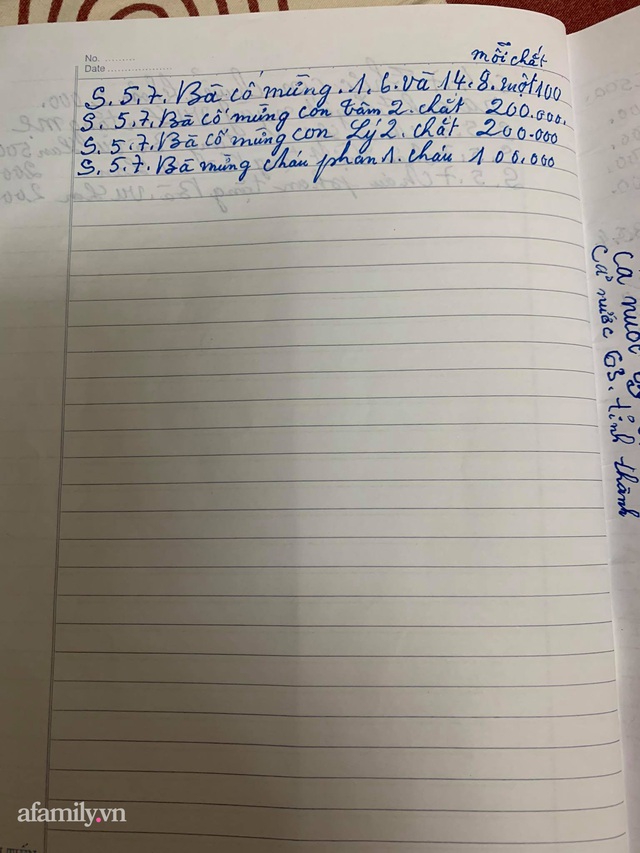 No. ..........
Date ......................
mỗi chắt
S. 5.7. Bà cố mừng. 1. 6. và 14. 8. một 100
S. 5.7. Bà cố mừng con Tâm 2. chắt 200.000.
S. 5.7. Bà cố mừng con Lý 2. chắt 200.000
S. 5.7. Bà mừng cháu phan 1. cháu. 100.000
Cả nước 63. tỉnh thành
afamily.vn